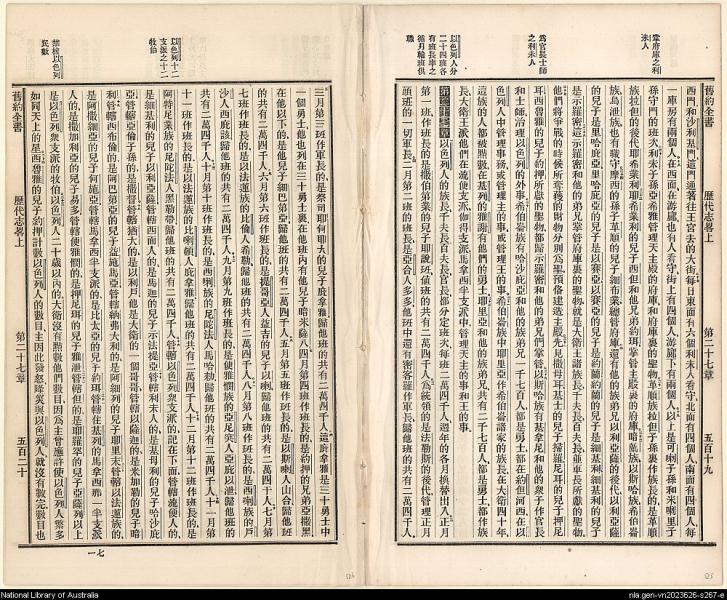 掌府庫之利
未人
爲官長士師
之利未人
以色列人分
二十四班各
有班長率之
循月輪班供
職
舊約全書 歷代志畧上 第二十七章 五百十九
西門和沙利基門這門通著往王宮去的大街每日東面有六個利未人看守北面有四個人南面有四個人每
一庫房有兩個人在西面在游廊也有人看守街上有四個人游廊下有兩個人以上是可喇子孫和米喇里子
孫守門的班次利未子孫亞希雅管理天主殿的府庫和府庫裏的聖物革順族拉但子孫裏作族長的是革順
族拉但的後代耶希業利耶希業利的兒子西但和他兄弟約珥掌管主殿裏的府庫暗蘭族以斯哈族希伯崙
族烏泄族也有職守摩西的孫子革順的兒子細布業總管府庫還有他的族弟兄以利亞薩的後代以利亞薩
的兒子是利哈庇亞利哈庇亞的兒子是以賽亞以賽亞的兒子是約蘭約蘭的兒子是細基利細基利的兒子
是示羅密這示羅密和他的弟兄掌管府庫裏的聖物就是大衛王諸族長千夫長百夫長並軍長所獻的聖物
他們將爭戰的時候所奪獲的財物分別爲聖預備建造主殿先見撒母耳基士的兒子掃羅尼耳的兒子押尼
耳西魯雅的兒子約押所獻的聖物都歸示羅密和他的弟兄們掌管以斯哈族有基拿尼和他的衆子作官長
和士師治理以色列的外事希伯崙族有哈沙庇亞和他的族弟兄一千七百人都是勇士都在約但河西在以
色列人中管理事務或管理主的事或管理王的事希伯崙族中耶里亞作希伯崙諸家的族長在大衛四十年
這族的人都被點數在基列的雅謝有他們的勇士耶里亞和他的族弟兄共有二千七百人都是勇士都作族
長大衛王派他們在流便支派迦得支派馬拿西半支派中管理天主的事和王的事
第二十七章以色列人的族長千夫長百夫長官長都分定班次每班二萬四千人週年的各月換替出入正月
第一班作班長的是撒伯第業的兒子耶說班值班的共有二萬四千人爲統領的是法勒斯的後代管理正月
頭班的一切軍長二月第二班的班長的是亞合人多多他班中還有密客羅作軍長歸他班的共有二萬四千人
以色列十二
支派之十二
牧伯
禁核以色列
民數
三月第三班作軍長的是祭司耶何耶大的兒子庇拿雅歸他班的共有二萬四千人這庇拿雅是三十勇士中
一個勇士他也列在三十勇士裏在他班內有他兒子暗米薩八四月第四班作班長的是約押的兄弟撒黑
在他以下的是他兒子細巴第亞歸他班的共有二萬四千人五月第五班作班長的是以斯喇人山合歸他班
的共有二萬四千人六月第六班作班長的是提哥亞人益吉的兒子以喇歸他班的共有二萬四千人七月第
七班作班長的是以法蓮族的比倫人希勒歸他班的共有二萬四千人八月第八班作班長的是西喇族的戶
沙人西庇該歸他班的共有二萬四千人九月第九班作班長的是便雅憫族的亞尼突人亞庇以泄歸他班的
共有二萬四千人十月第十班作班長的是西喇族的尼陀法人馬哈勒歸他班的共有二萬四千人十一月第
十一班作班長的是以法蓮族的比喇頓人庇拿雅歸他班的共有二萬四千人十二月第十二班作班長的是
阿特尼業族的尼陀法人黑勒帶歸他班的共有二萬四千人管轄以色列衆支派的記在下面管轄流便人的
是細基利的兒子以利亞薩管轄西面人的是馬迦的兒子示法提亞管轄利未人的是基母利的兒子哈沙庇
亞管轄亞倫子孫的是撒督管轄猶大的是以利戶他是大衛的一個哥哥管轄以薩迦的是米加勒的兒子暗
利管轄西布倫的是阿巴第亞的兒子益施馬亞管轄納弗大利的是阿細列的兒子耶里末管轄以法蓮族的
是阿撒細亞的兒子何施亞管轄馬拿西半支派的是比大亞的兒子約珥管轄住基列的馬拿西那一半支派
的是撒加利亞的兒子易多管轄便雅憫的是押尼珥的兒子雅泄管轄但的是耶羅罕的兒子亞薩列以上
是以色列衆支派的牧伯以色列人二十歲以內的大衛沒有點數他們數目因爲主曾應許使以色列人繁多
如同天上的星西魯雅的兒子約押計數以色列人的數目主因此發怒降災與以色列人就沒有數完數目也
舊約全書 歷代志畧上 第二十七章 五百二十
一七
National Library of Australia
nla.gen-vn2023626-s267-e